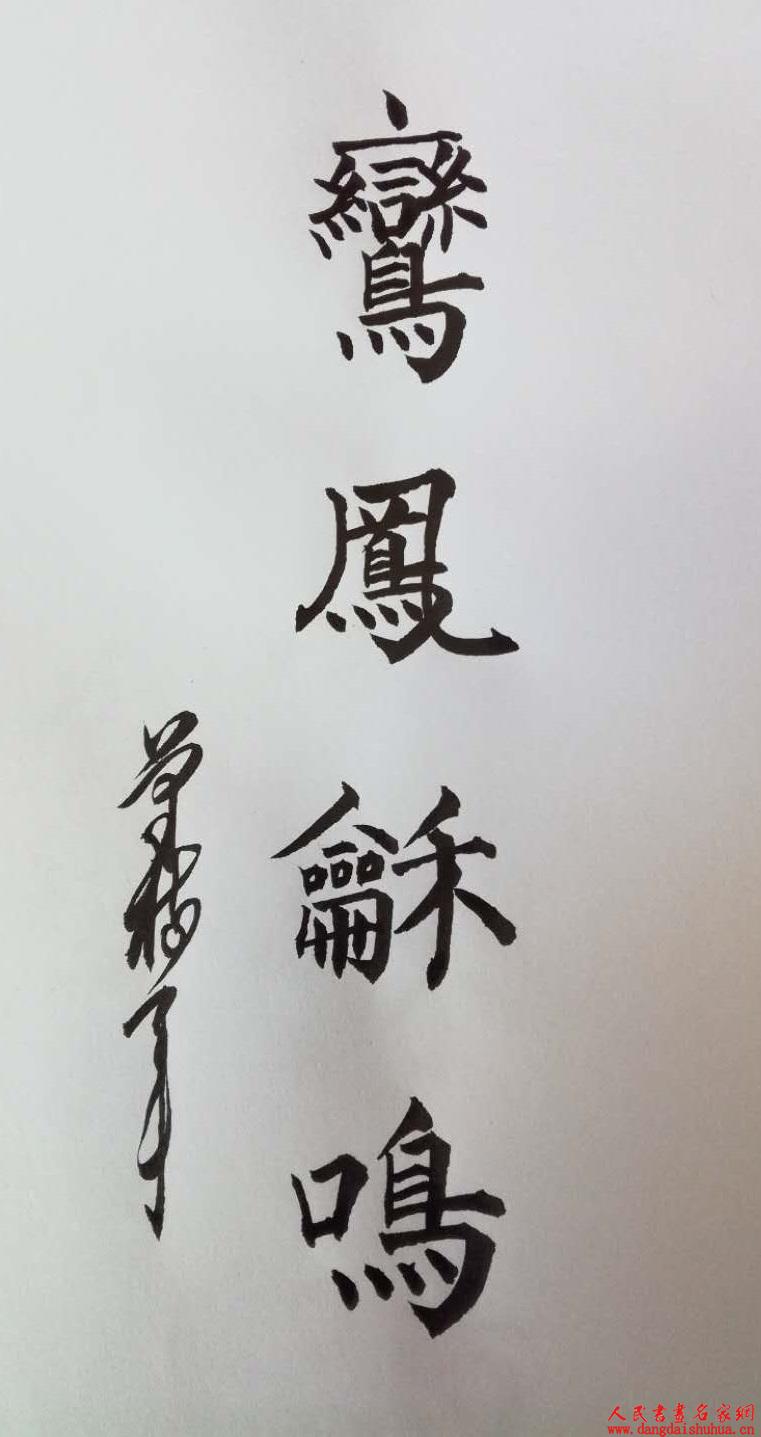 鸞鳳龢鳴
人民書畫名家網
www.dangdaishuhua.cn